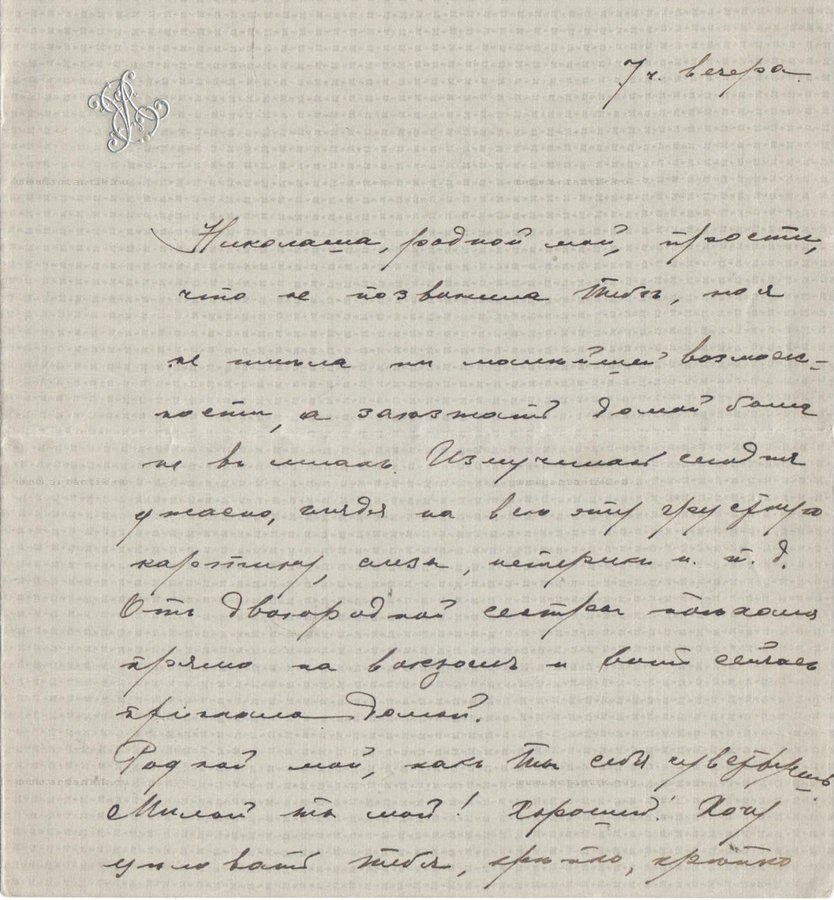 7 ч. вечера.
Николаша, родной мой, прости,
что не позвонила тебѣ, но я
не имѣла ни малѣйшей возмож-
ности, а заѣзжать домой было
не въ мочь. Измучилась сегодня
ужасно, глядя на всю эту грустную
картину, слезы, истерики и т. д.
Отъ двоюродной сестры поѣхала
прямо на вокзалъ и вотъ сейчасъ
пріѣхала домой.
Родной мой, какъ ты себя чувствуешь
Милый ты мой! Хорошій! Хочу
цѣловать тебя, крѣпко, крѣпко